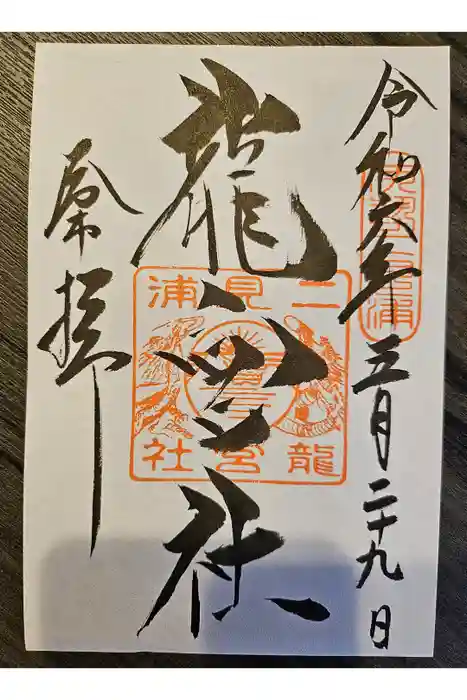 令和六年三月二十九日
龍宮社
奉拝
二見浦
龍宮社